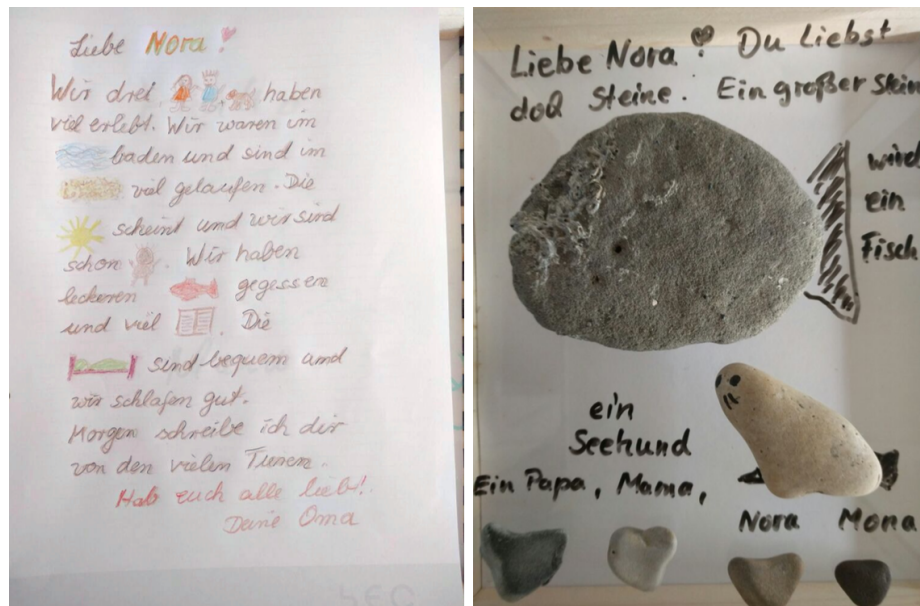 Liebe Nora!
Wir drei haben
viel erlebt. Wir waren im
baden und sind im
viel gelaufen. Die
scheint und wir sind
schon . Wir haben
leckeren gegessen
und viel . Die
sind bequem und
wir schlafen gut.
Morgen schreibe ich dir
von den vielen Tieren.
Hab euch alle lieb!
Deine Oma
Liebe Nora! Du Liebst
doch Steine. Ein großer Stein
wird
ein
Fisch
ein
Seehund
Ein Papa, Mama,
Nora Mona